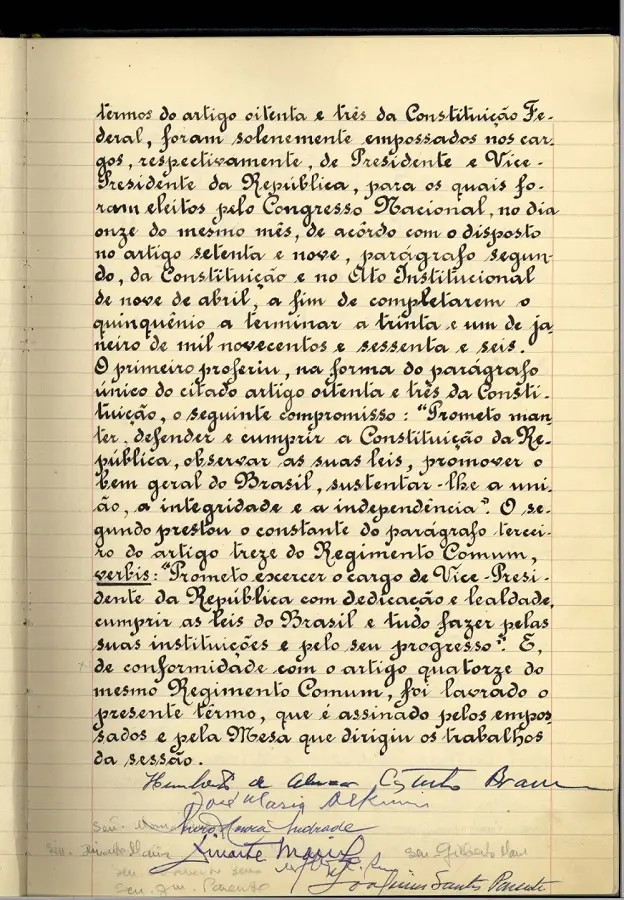 termos do artigo oitenta e três da Constituição Fe-
deral, foram solenemente empossados nos car-
gos, respectivamente, de Presidente e Vice-
Presidente da República, para os quais fo-
ram eleitos pelo Congresso Nacional, no dia
onze do mesmo mês, de acôrdo com o disposto
no artigo setenta e nove, parágrafo segun-
do, da Constituição e no Ato Institucional
de nove de abril, a fim de completarem o
quinquênio a terminar a trinta e um de ja-
neiro de mil novecentos e sessenta e seis.
O primeiro proferiu, na forma do parágrafo
único do citado artigo oitenta e três da Consti-
tuição, o seguinte compromisso: "Prometo man-
ter, defender e cumprir a Constituição da Re-
pública, observar as suas leis, promover o
bem geral do Brasil, sustentar-lhe a uni-
ão, a integridade e a independência". O se-
gundo prestou o constante do parágrafo tercei-
ro do artigo treze do Regimento Comum,
verbis: "Prometo exercer o cargo de Vice-Presi-
dente da República com dedicação e lealdade,
cumprir as leis do Brasil e tudo fazer pelas
suas instituições e pelo seu progresso". E,
de conformidade com o artigo quatorze do
mesmo Regimento Comum, foi lavrado o
presente têrmo, que é assinado pelos empos-
sados e pela Mesa que dirigiu os trabalhos
da sessão.
Humberto de Alencar Castello Branco
José Maria Alkmin
Sen. Moura Andrade
Sen. Dinarte Mariz Dinarte Mariz Sen. Gilberto
Sen. Jm. Parente Joaquim Santos Parente